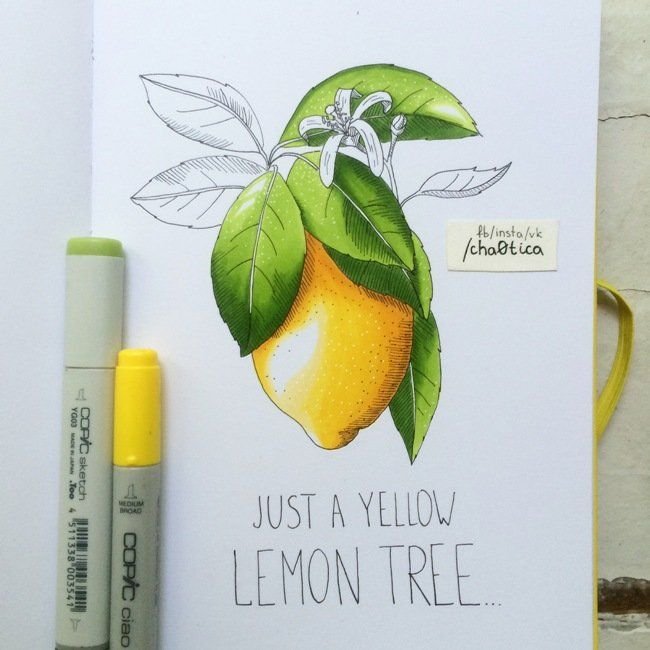 fb/insta/vk
/cha0tica
JUST A YELLOW
LEMON TREE...
COPiC sketch
YG03
MADE IN JAPAN
.Too
4 511338 003541
MEDIUM
BROAD
COPiC ciao